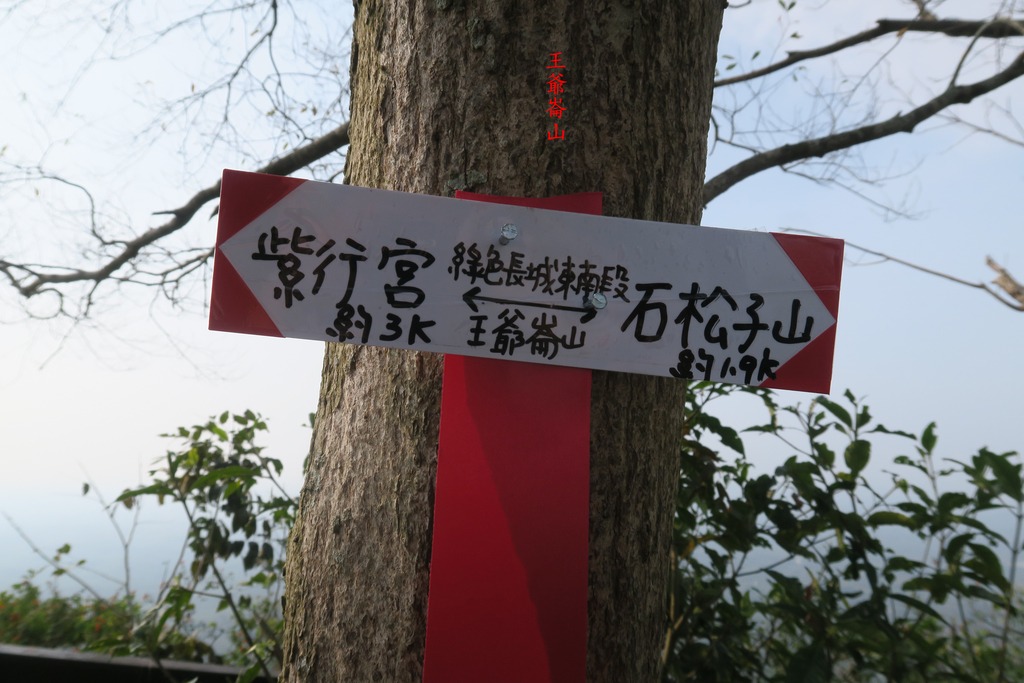 王爺崙山
紫行宮
約3K
綠色長城東南段
王爺崙山
石松子山
約1.9K